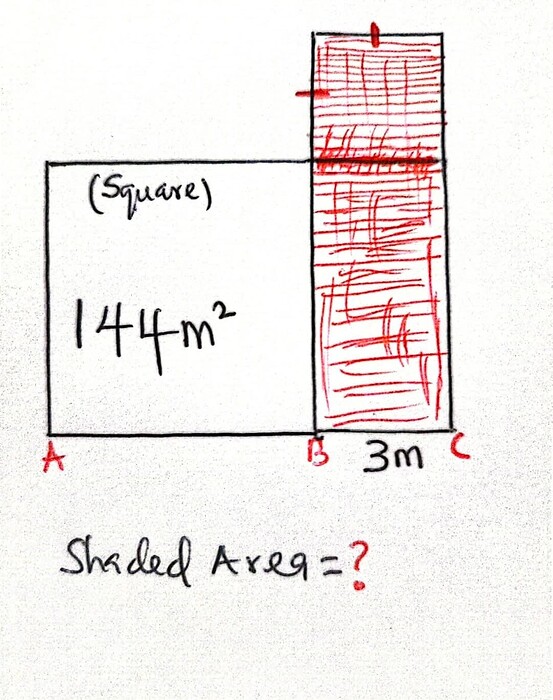 (Square)
144m²
A B 3m C
Shaded Area=?